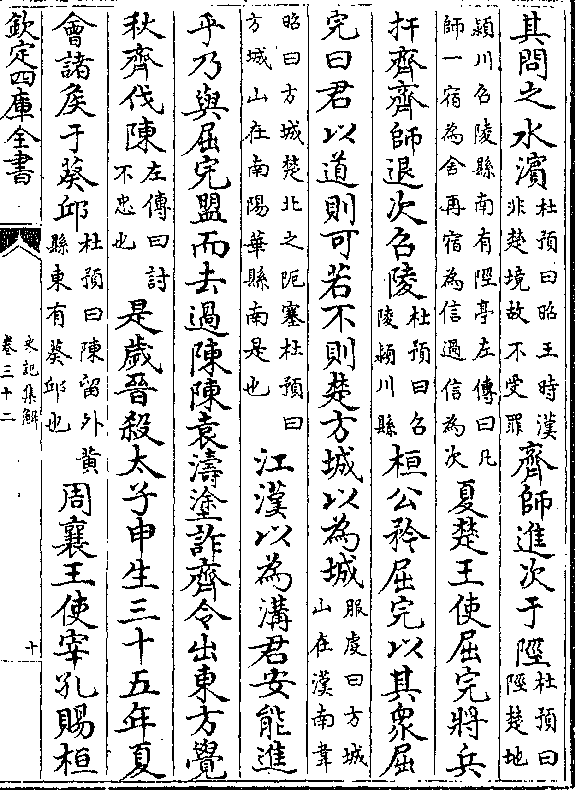 其問之水濱杜預曰昭王時漢非楚境故不受罪齊師進次于陘杜預曰陘楚地
潁川召陵縣南有陘亭左傳曰凡師一宿為舍再宿為信過信為次夏楚王使屈完將兵
扞齊齊師退次召陵杜預曰召陵潁川縣桓公矜屈完以其衆屈
完曰君以道則可若不則楚方城以為城服虔曰方城山在漢南韋
昭曰方城楚北之阨塞杜預曰方城山在南陽葉縣南是也江漢以為溝君安能進
乎乃與屈完盟而去過陳陳袁濤塗詐齊令出東方覺
秋齊伐陳左傳曰討不忠也是歲晉殺太子申生三十五年夏
會諸矦于葵邱杜預曰陳留外黃縣東有葵邱也周襄王使宰孔賜桓
欽定四庫全書
史記集解
卷三十二
十